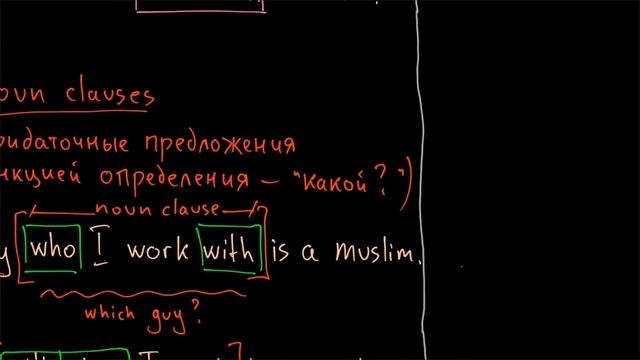 oun clauses
ридаточные предложения
нкцией определения – "какой?")
noun clause
y who I work with is a muslim.
which guy?